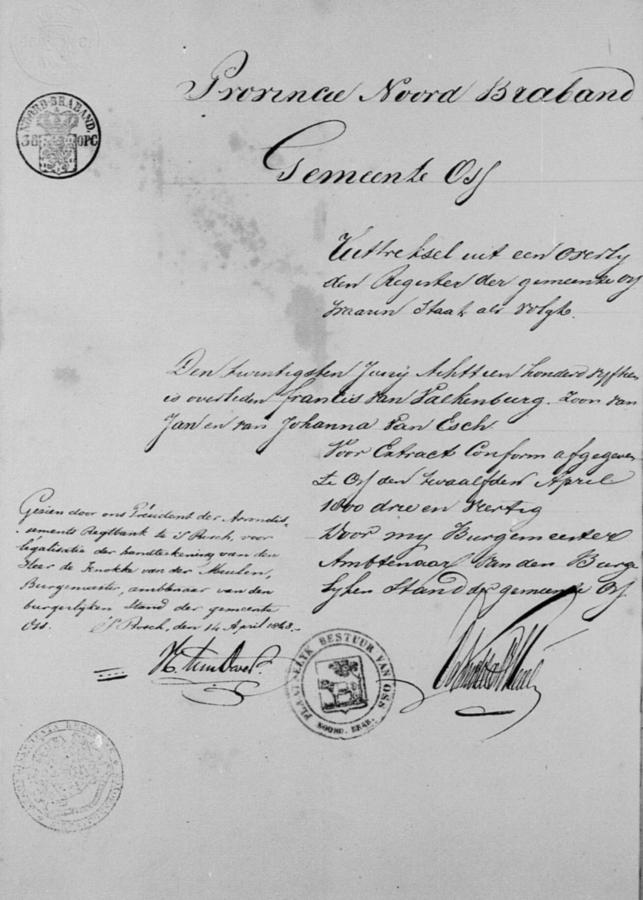 NOORD-BRABAND.
38 OPC
Provincie Noord Braband
Gemeente Oss
Uittreksel uit een overly
den Register der gemeente Oss
waarin Staat als volgt.
Den twintigsten Juny Achttien honderd vyftien
is overleden francis van Valkenburg. Zoon van
Jan en van Johanna van Esch.
Voor Extract Conform afgegeven
te Oss den twaalfden April
1800 drie en veertig
Voor my Burgemeester
Ambtenaar van den Burge
lyken Stand der gemeente Oss.
Gezien door ons President der Arrondis,
sements Regtbank te 's Bosch, voor
legalisatie der handteekening van den
Heer de Knokke van der Meulen,
Burgemeester, ambtenaar van den
burgerlyken Stand der gemeente
Oss. 's Bosch, den 14 April 1843.-
PLAATSELYK BESTUUR VAN OSS
NOORD. BRAB.